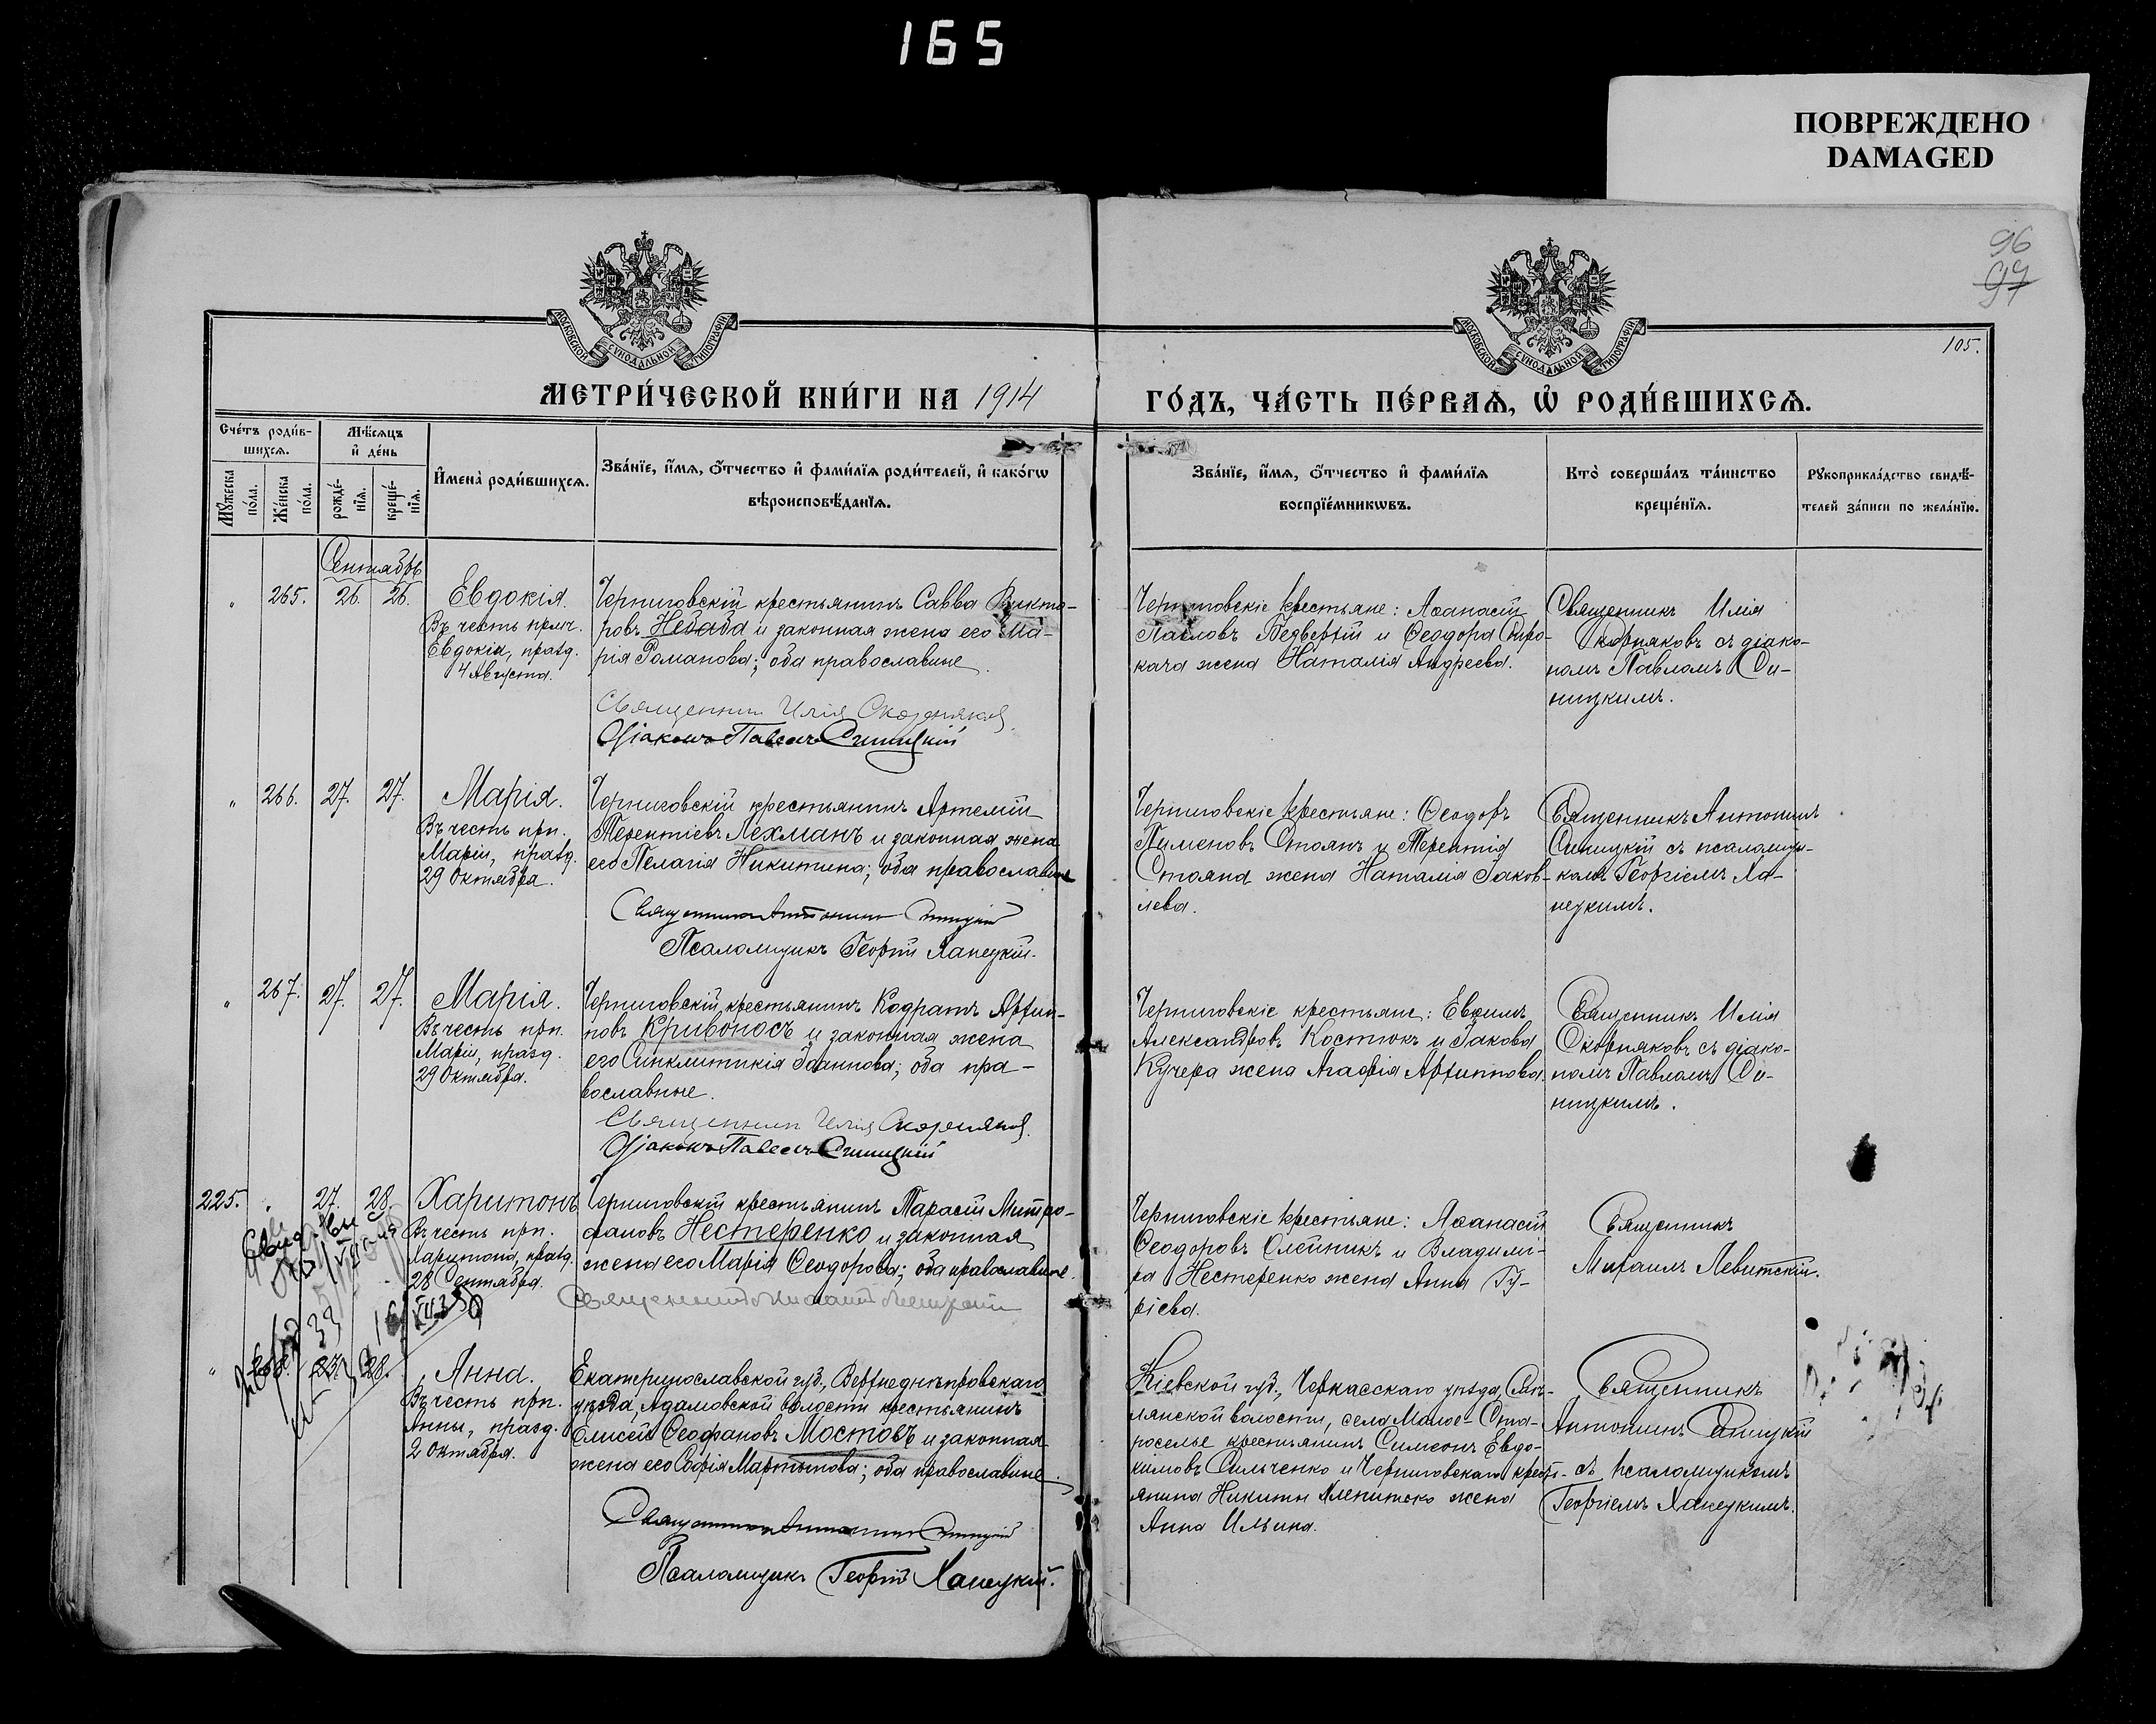 165
ПОВРЕЖДЕНО
DAMAGED
96
97
105.
МОСКОВСКОЙ СѴНОДАЛЬНОЙ ТИПОГРАФІИ
МОСКОВСКОЙ СѴНОДАЛЬНОЙ ТИПОГРАФІИ
МЕТРИ́ЧЕСКОЙ КНИ́ГИ НА 1914
ГО́ДЪ, ЧА́СТЬ ПЕ́РВАѦ, Ѡ РОДИ́ВШИХСѦ.
Сче́тъ роди́в-
шихсѧ.
Мꙋжеска по́ла.
Же́нска по́ла.
Мѣ́сѧцъ
и҆ де́нь
рожде́-
нїѧ.
креще́-
нїѧ.
И҆мена̀ роди́вшихсѧ.
Зва́нїе, и҆́мѧ, ѻ҆́тчество и҆ фами́лїѧ роди́телей, и҆ како́гѡ
вѣроисповѣ́данїѧ.
Зва́нїе, и҆́мѧ, ѻ҆́тчество и҆ фами́лїѧ
воспрїе́мникѡвъ.
Кто̀ соверша́лъ та́инство
креще́нїѧ.
Рꙋкоприкла́дство свидѣ́-
телей за́писи по жела́нїю.
Сентябрь
" 265. 26. 26.
Евдокія.
Въ честь прмч.
Евдокіи, празд.
4 Августа.
Черниговскій крестьянинъ Савва Викто-
ровъ Небаба и законная жена его Ма-
рія Романова; оба православные.
Священник Илія Скорняков.
Діаконъ Павелъ Синицкій
Черниговскіе крестьяне: Аѳанасій
Павловъ и Ѳеодора
жена Наталія Андреева.
Священникъ Илія
Скорняковъ съ діако-
номъ Павломъ Си-
ницкимъ.
" 266. 27. 27.
Марія.
Въ честь прп.
Маріи, празд.
29 Октября.
Черниговскій крестьянинъ Артемій
Терентіевъ Лехманъ и законная жена
его Пелагія Никитина; оба православные
Священникъ Антонинъ Синицкій
Псаломщикъ Георгій Ханецкій.
Черниговскіе крестьяне: Ѳеодоръ
Пименовъ Стоянъ и Терентія
Стояна жена Наталія Іаков-
лева.
Священникъ Антонинъ
Синицкій съ псаломщи-
комъ Георгіемъ Ха-
нецкимъ.
" 267. 27. 27.
Марія.
Въ честь прп.
Маріи, празд.
29 Октября.
Черниговскій крестьянинъ Кодратъ Архип-
повъ Кривоносъ и законная жена
его Синклитикія Іоаннова; оба пра-
вославные.
Священник Илія Скорняков.
Діаконъ Павелъ Синицкій
Черниговскіе крестьяне: Евѳимъ
Александровъ Костюкъ и Іакова
Кучера жена Агаѳія Архиппова.
Священникъ Илія
Скорняковъ съ діако-
номъ Павломъ Си-
ницкимъ.
225. " 27. 28.
Харитонъ
Въ честь прп.
Харитона, празд.
28 Сентября.
Черниговскій крестьянинъ Тарасій Митро-
фановъ Нестеренко и законная
жена его Марія Ѳеодорова; оба православные.
Священникъ Михаилъ Левитскій
Черниговскіе крестьяне: Аѳанасій
Ѳеодоровъ Олейникъ и Владимі-
ра Нестеренко жена Анна Гу-
ріева.
Священникъ
Михаилъ Левитскій.
" 268. 23. 28.
Анна.
Въ честь прп.
Анны, празд.
2 Октября.
Екатеринославской губ., Верхнеднѣпровскаго
уѣзда, Адамовской волости крестьянинъ
Елисей Ѳеофановъ Мостовъ и законная
жена его Софія Мартынова; оба православные.
Священникъ Антонинъ Синицкій
Псаломщикъ Георгій Ханецкій.
Кіевской губ., Черкасскаго уѣзда, Смѣ-
лянской волости, села Малое-Ста-
роселье крестьянинъ Симеонъ Евдо-
кимовъ Сильченко и Черниговскаго крест-
янина Никиты жена
Анна Ильина.
Священникъ
Антонинъ Синицкій
съ псаломщикомъ
Георгіемъ Ханецкимъ.